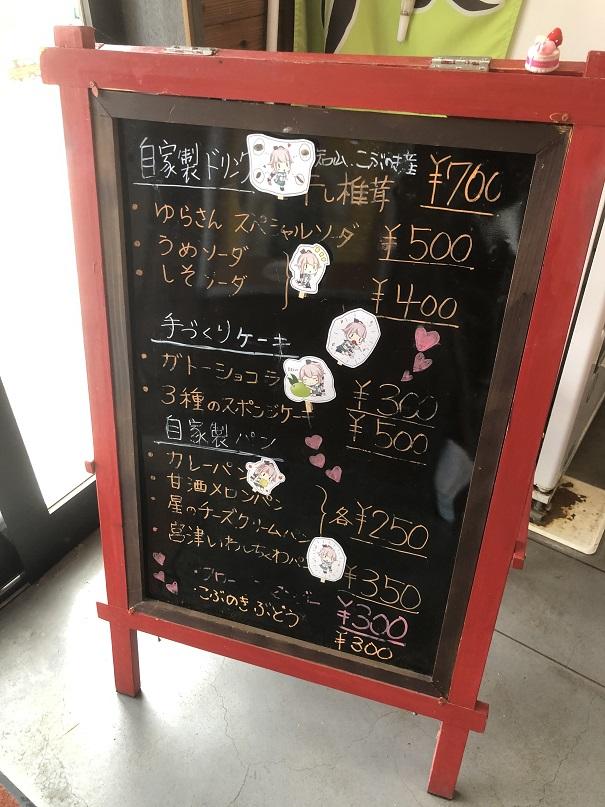 自家製ドリンク
こぶのき産
干し椎茸 ¥700
・ゆらさん スペシャルソーダ ¥500
・うめソーダ
・しそソーダ ¥400
手づくりケーキ
・ガトーショコラ ¥300
・3種のスポンジケーキ ¥500
自家製パン
・カレーパン
・甘酒メロンパン
・星のチーズクリームパン 各¥250
・宮津いわしちくわパン ¥350
¥300
・こぶのきぶどう ¥300